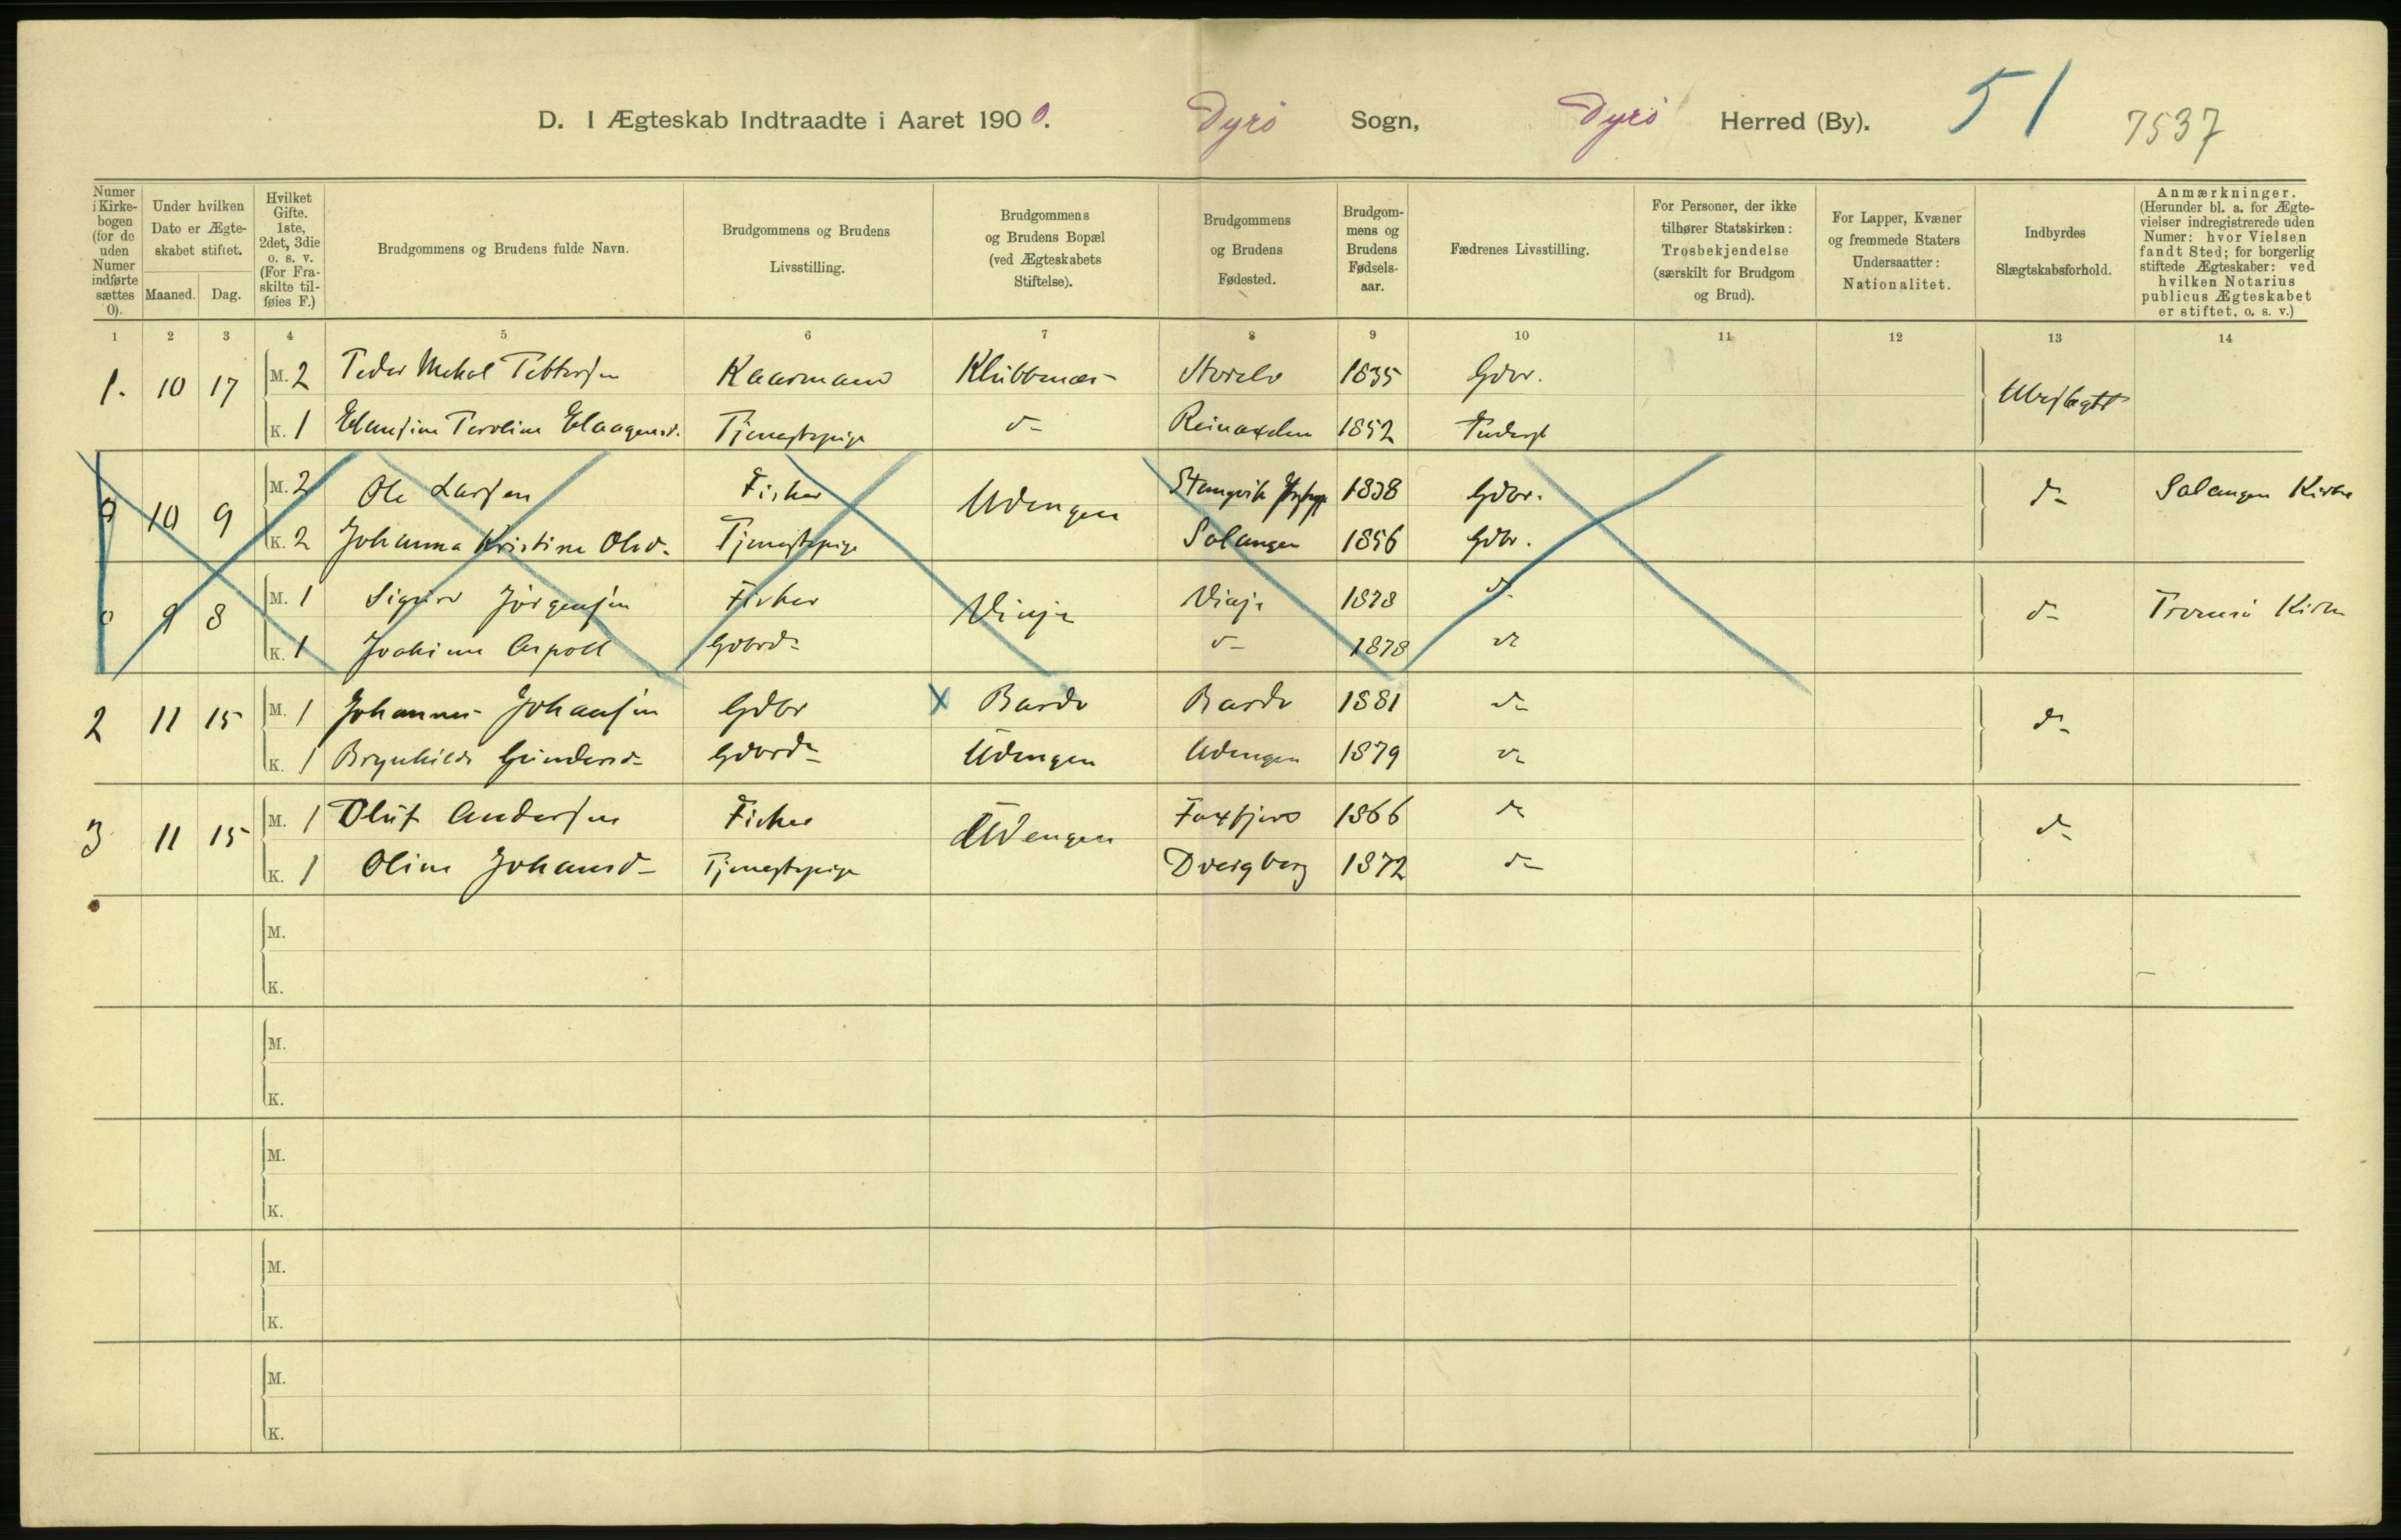 D. I Ægteskab Indtraadte i Aaret 1900. Dyrö Sogn, Dyrö Herred (By). 51 7537
Numer i Kirkebogen (for de uden Numer indførte sættes 0).
Under hvilken Dato er Ægteskabet stiftet.
Maaned. Dag.
Hvilket Gifte. 1ste, 2det, 3die o. s. v. (For Fraskilte tilføies F.)
Brudgommens og Brudens fulde Navn.
Brudgommens og Brudens Livsstilling.
Brudgommens og Brudens Bopæl (ved Ægteskabets Stiftelse).
Brudgommens og Brudens Fødested.
Brudgommens og Brudens Fødselsaar.
Fædrenes Livsstilling.
For Personer, der ikke tilhører Statskirken: Trosbekjendelse (særskilt for Brudgom og Brud).
For Lapper, Kvæner og fremmede Staters Undersaatter: Nationalitet.
Indbyrdes Slægtskabsforhold.
Anmærkninger. (Herunder bl. a. for Ægtevielser indregistrerede uden Numer: hvor Vielsen fandt Sted; for borgerlig stiftede Ægteskaber: ved hvilken Notarius publicus Ægteskabet er stiftet, o. s. v.)
1 2 3 4 5 6 7 8 9 10 11 12 13 14
1. 10 17 M. 2 Peder Mekal Pettersen Kaarmand Klubbenæs 1835 Gdbr. Ubeslægtet
K. 1 Tjenestepige d- 1852
0 10 9 M. 2 Ole Larsen Fisker Udengen 1838 Gdbr. d- Salangen Kirke
K. 2 Johanna Kristine Olsd. Tjenestepige Salangen 1856 Gdbr.
0 9 8 M. 1 Sigurd Jörgensen Fisker Vinje Vinje 1878 d- d- Tromsö Kirke
K. 1 Gdbrd- d- 1878 d-
2 11 15 M. 1 Johannes Johansen Gdbr x Bardo Bardo 1881 d- d-
K. 1 Brynhild Gundersd- Gdbrd- Udengen Udengen 1879 d-
3 11 15 M. 1 Oluf Andersen Fisker Udengen Faxfjord 1866 d- d-
K. 1 Oline Johansd- Tjenestepige Dvergberg 1872 d-
M.
K.
M.
K.
M.
K.
M.
K.
M.
K.